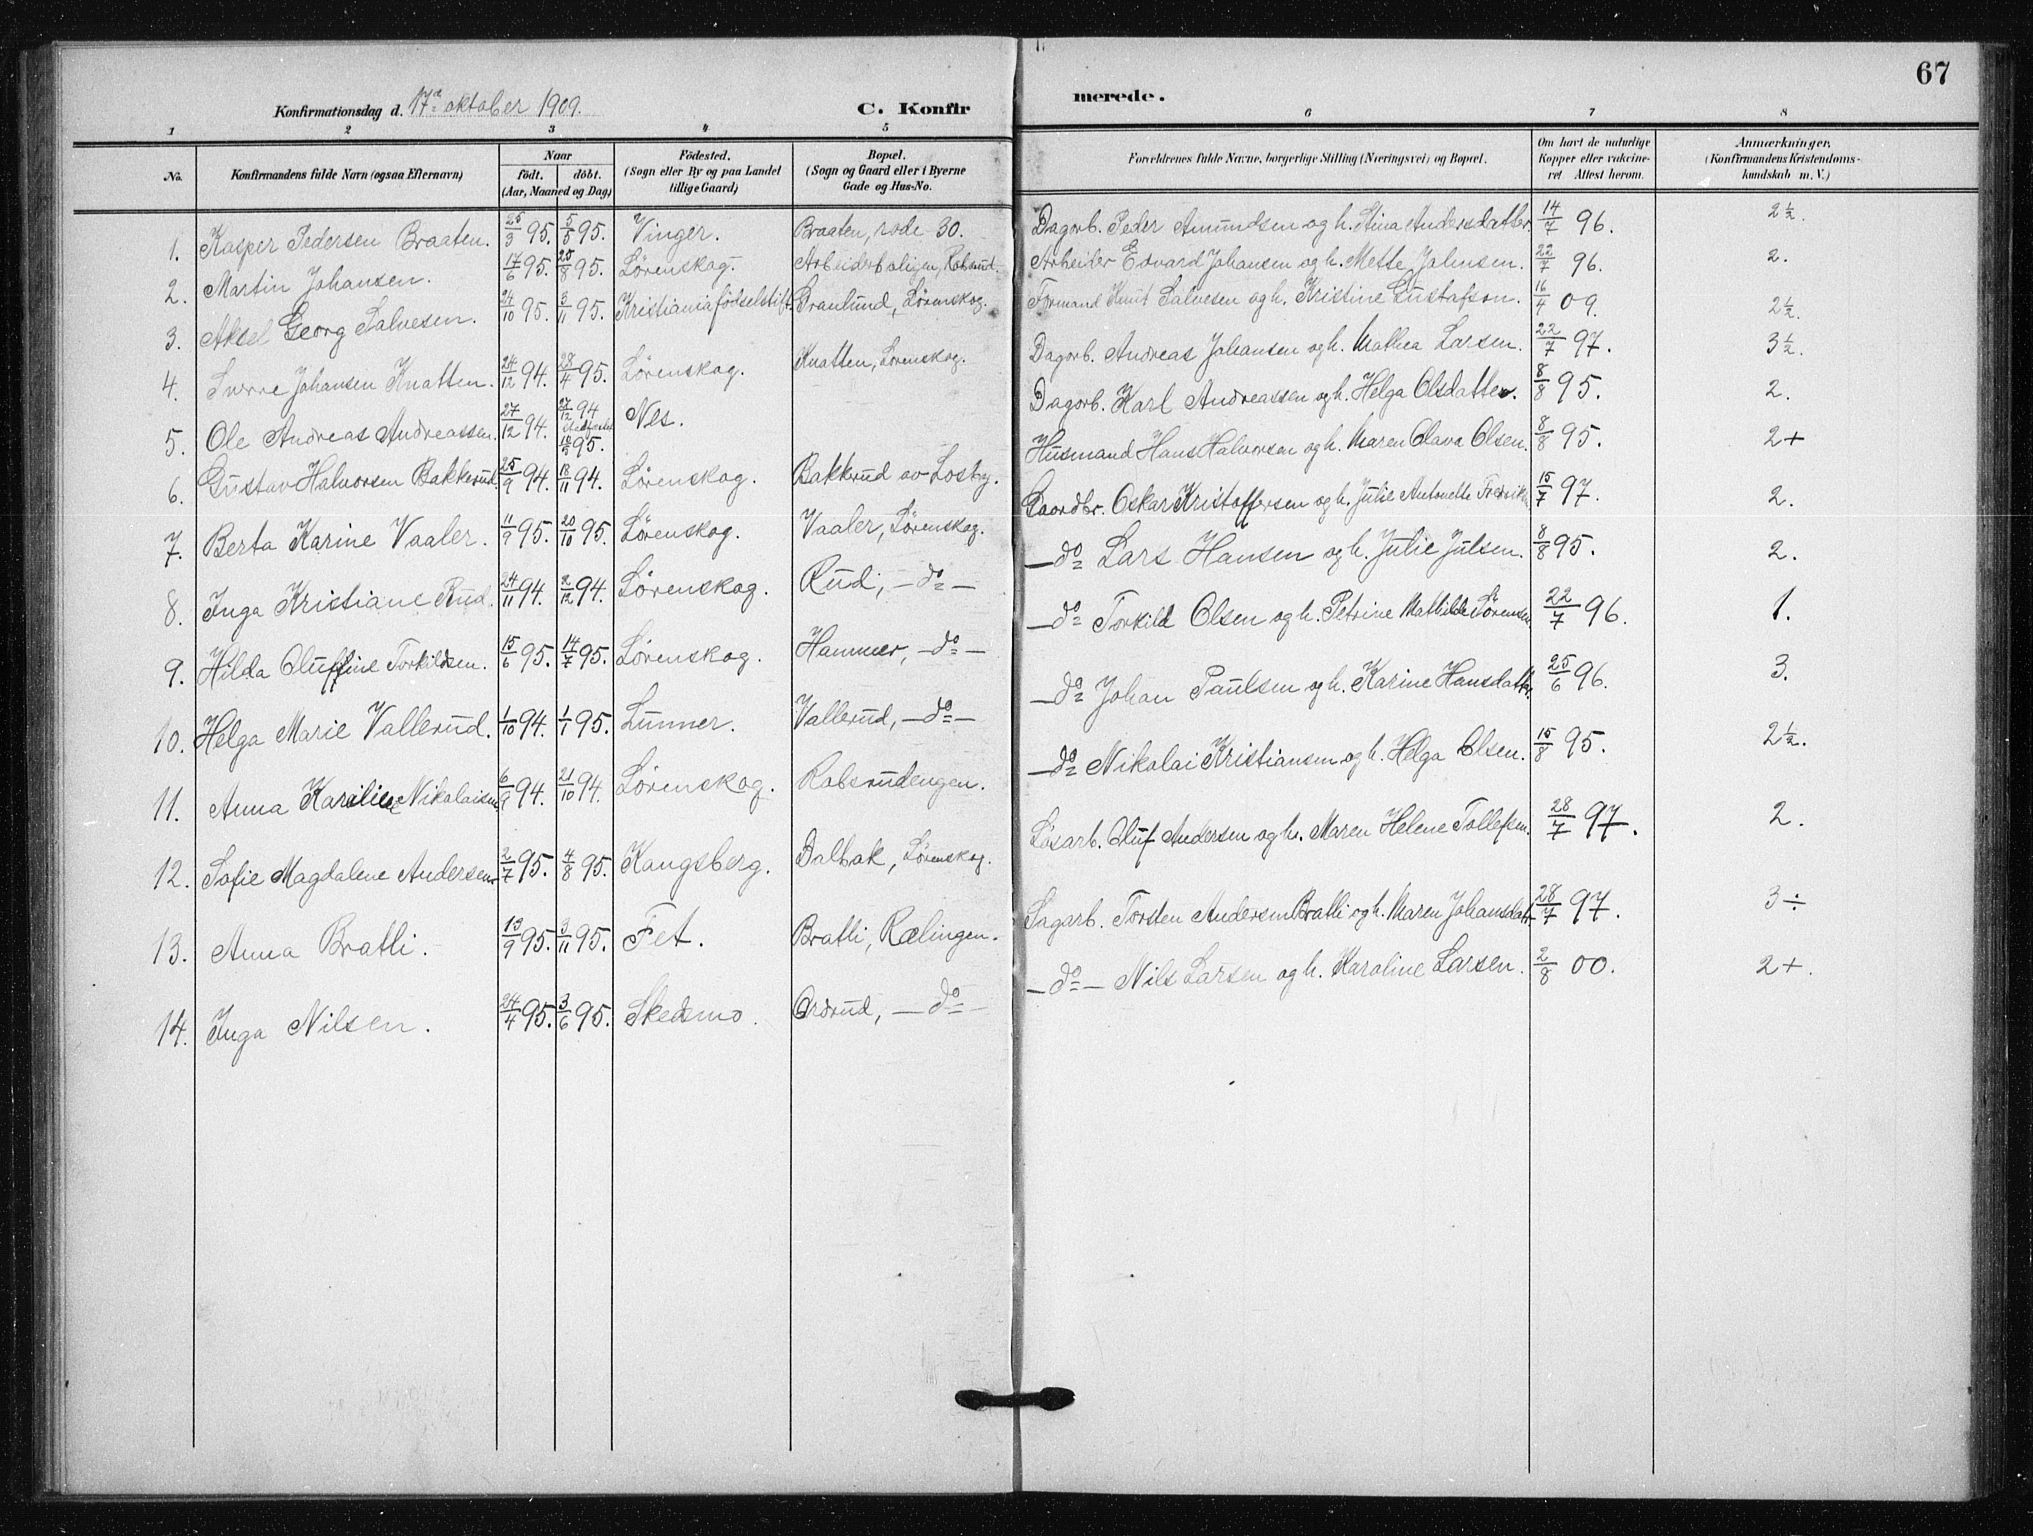 67
Konfirmationsdag d. 17de oktober 1909. C. Konfir merede.
1 2 3 4 5 6 7 8
No. Konfirmandens fulde Navn (ogsaa Efternavn) Naar født. døbt. (Aar, Maaned og Dag) Fødested. (Sogn eller By og paa Landet tillige Gaard) Bopæl. (Sogn og Gaard eller i Byerne Gade og Hus-No. Forældrenes fulde Navne, borgerlige Stilling (Næringsvei) og Bopæl. Om havt de naturlige Kopper eller vakcineret. Attest herom. Anmærkninger, (Konfirmandens Kristendomskundskab m. V.)
1. Kasper Pedersen Braaten. 25/3 95. 5/5 95. Vinger. Braaten, rode 30. Dagarb. Peder Amundsen og h. Stina Andersdatter. 14/7 96. 2½.
2. Martin Johansen. 17/6 95. 25/8 95. Lørenskog. Arbeiderboligen, Robsrud. Arbeider Edvard Johansen og h. Mette Johnsen. 22/7 96. 2.
3. Aksel Georg Salvesen. 24/10 95. 3/11 95. Kristiania fødselstift. Granlund, Lørenskog. Formand Knut Salvesen og h. Kristine Gustafson. 16/4 09. 2½.
4. Sverre Johansen Knatten. 24/12 94. 28/4 95. Lørenskog. Knatten, Lørenskog. Dagarb. Andreas Johansen og h. Mathea Larsen. 22/7 97. 3½.
5. Ole Andreas Andreassen. 27/12 94. 27/12 94 95. Nes. Dagarb. Karl Andreassen og h. Helga Olsdatter. 8/8 95. 2.
6. Gustav Halvorsen Bakkerud. 25/9 94. 18/11 94. Lørenskog. Bakkerud av Losby. Husmand Hans Halvorsen og h. Maren Olava Olsen. 8/8 95. 2+
7. Berta Karine Vaaler. 11/9 95. 20/10 95. Lørenskog. Vaaler, Lørenskog. Gaardbr. Oskar Kristoffersen og h. Julie Antonette 15/7 97. 2.
8. Inga Kristiane Rud. 24/11 94. 2/12 94. Lørenskog. Rud, — do — — do Lars Hansen og h. Julie Julsen. 8/8 95. 2.
9. Hilda Oluffine Torkildsen. 15/6 95. 14/7 95. Lørenskog. Hammer, — do — — do Torkild Olsen og h. Petrine Mathilde Sørensen. 22/7 96. 1.
10. Helga Marie Vallerud. 1/10 94. 1/1 95. Lunner. Vallerud, — do — — do Johan Paulsen og h. Karine Hansdatter. 25/6 96. 3.
11. Anna Karoline Nikolaisen 6/9 94. 21/10 94. Lørenskog. Robsrudengen. — do Nikolai Kristiansen og h. Helga Olsen. 15/8 95. 2½.
12. Sofie Magdalene Andersen 2/7 95. 4/8 95. Kongsberg. Dalbak, Lørenskog. Løsarb. Oluf Andersen og h. Maren Helene Tollefsen. 28/7 97. 2.
13. Anna Bratli. 13/9 95. 3/11 95. Fet. Bratli, Rælingen. Sagarb. Torsten Andersen Bratli og h. Maren Johansdatr. 28/7 97. 3÷
14. Inga Nilsen. 24/4 95. 3/6 95. Skedsmo. Ordrud, — do — — do — Nils Larsen og h. Karoline Larsen. 2/8 00. 2+.